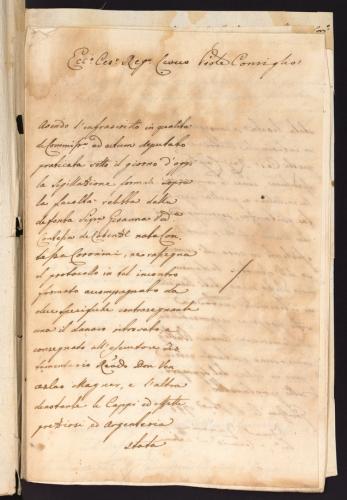 Ecc.o Ces.o Reg.o Civico Prov.e Consiglio!
Avendo l'infrascritto in qualità
di Commiss.o ad actum deputato
praticata sotto il giorno d'oggi
la sigillazione formale sopra
la facoltà relitta dalla
defonta Sig.ra Giovanna Ved.a
Contessa de Cobenzl nata Con-
tessa Coronini, ne rassegna
il protocollo in tal incontro
formato accompagnato da
due specifiche contrassegnate
una il danaro ritrovato, e
consegnato all'esecutore te-
stamentario Rev.do Don Ven-
ceslao Magner, e l'altra
denotante le Cappi ed effetti
preziosi ed Argenteria
stata